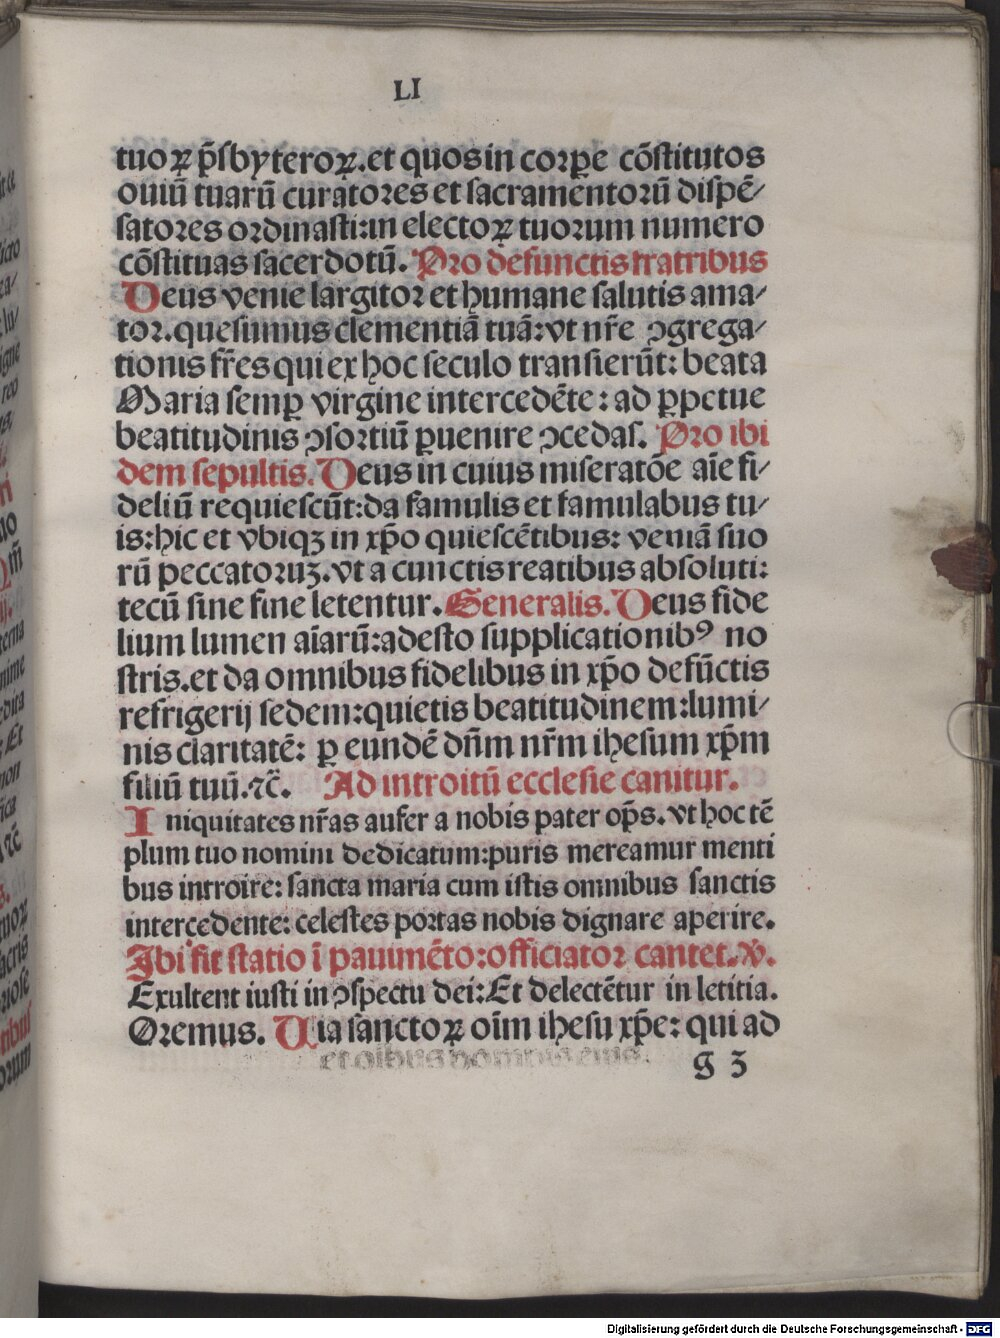 LI
tuoꝝ p̄sbyteroꝝ.et quos in corꝑe cōstitutos
ouiū tuarū curatores et sacramentorū dispē/
satores ordinasti:in electoꝝ tuorum numero
cōstituas sacerdotū. Pro defunctis fratribus
Deus venie largitor et humane salutis ama/
tor.quesumus clementiā tuā:vt nr̄e ꝯgrega/
tionis fr̄es qui ex hoc seculo transierūt: beata
Maria semꝑ virgine intercedēte: ad ꝑpetue
beatitudinis ꝯsortiū ꝑuenire ꝯcedas. Pro ibi
dem sepultis. Deus in cuius miseratōe aīe fi/
deliū requiescūt:da famulis et famulabus tu/
is:hic et vbiqꝫ in xp̄o quiescētibus: veniā suo
rū peccatoruꝫ.vt a cunctis reatibus absoluti:
tecū sine fine letentur. Generalis. Deus fide
lium lumen aīarū:adesto supplicationibꝰ no
stris.et da omnibus fidelibus in xp̄o defūctis
refrigerij sedem:quietis beatitudinem:lumi/
nis claritatē: ꝑ eundē dn̄m nr̄m ihesum xp̄m
filiū tuū.⁊c̄. Ad introitū ecclesie canitur.
Iniquitates nr̄as aufer a nobis pater op̄s.vt hoc tē
plum tuo nomini dedicatum:puris mereamur menti
bus introire: sancta maria cum istis omnibus sanctis
intercedente: celestes portas nobis dignare aperire.
Ibi fit statio ī pauimēto:officiator cantet.℣.
Exultent iusti in ꝯspectu dei:Et delectētur in letitia.
Oremus. Uia sanctoꝝ oīm ihesu xp̄e: qui ad
g 3
Digitalisierung gefördert durch die Deutsche Forschungsgemeinschaft - DFG